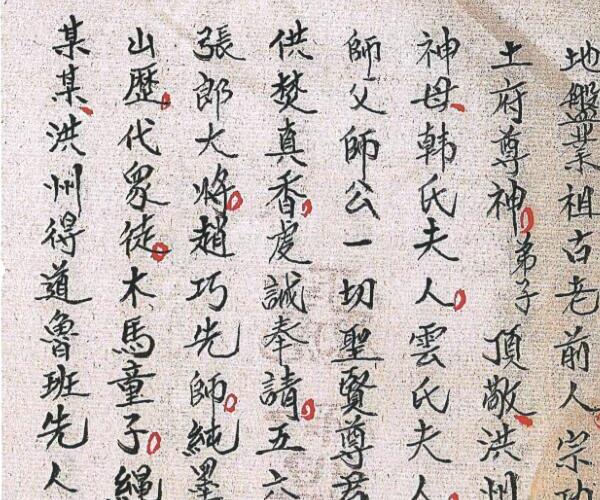 地盤業祖古老前人宗
土府尊神弟子頂敬洪州
神母韓氏夫人雲氏夫人
師父師公一切聖賢尊
供焚真香虔誠奉請五六
張郎大將趙巧先師純墨
山歷代眾徒木馬童子繩
某某洪州得道魯班先人